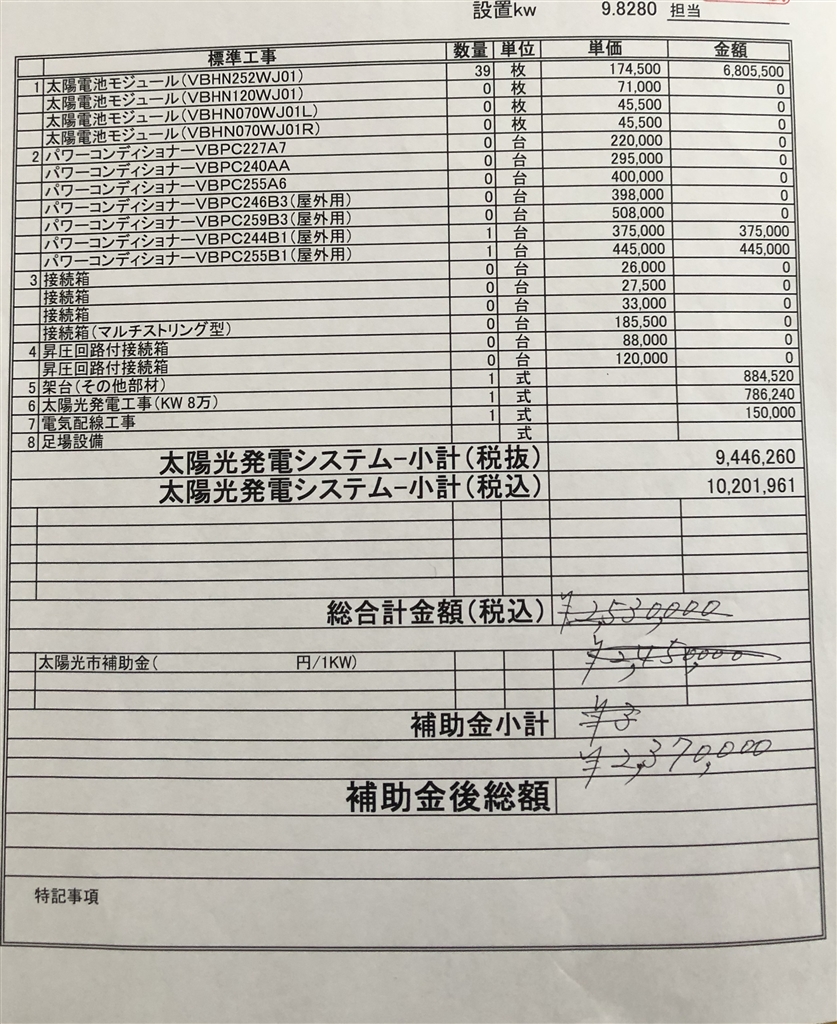 設置kw 9.8280 担当
標準工事 数量 単位 単価 金額
1 太陽電池モジュール(VBHN252WJ01) 39 枚 174,500 6,805,500
太陽電池モジュール(VBHN120WJ01) 0 枚 71,000 0
太陽電池モジュール(VBHN070WJ01L) 0 枚 45,500 0
太陽電池モジュール(VBHN070WJ01R) 0 枚 45,500 0
2 パワーコンディショナーVBPC227A7 0 台 220,000 0
パワーコンディショナーVBPC240AA 0 台 295,000 0
パワーコンディショナーVBPC255A6 0 台 400,000 0
パワーコンディショナーVBPC246B3(屋外用) 0 台 398,000 0
パワーコンディショナーVBPC259B3(屋外用) 0 台 508,000 0
パワーコンディショナーVBPC244B1(屋外用) 1 台 375,000 375,000
パワーコンディショナーVBPC255B1(屋外用) 1 台 445,000 445,000
3 接続箱 0 台 26,000 0
接続箱 0 台 27,500 0
接続箱 0 台 33,000 0
接続箱(マルチストリング型) 0 台 185,500 0
4 昇圧回路付接続箱 0 台 88,000 0
昇圧回路付接続箱 0 台 120,000 0
5 架台(その他部材) 1 式 884,520
6 太陽光発電工事(KW 8万) 1 式 786,240
7 電気配線工事 1 式 150,000
8 足場設備 式
太陽光発電システム-小計(税抜) 9,446,260
太陽光発電システム-小計(税込) 10,201,961
総合計金額(税込) ¥2,530,000
太陽光市補助金( 円/1KW) ¥2,450,000
補助金小計 ¥3
¥2,370,000
補助金後総額
特記事項